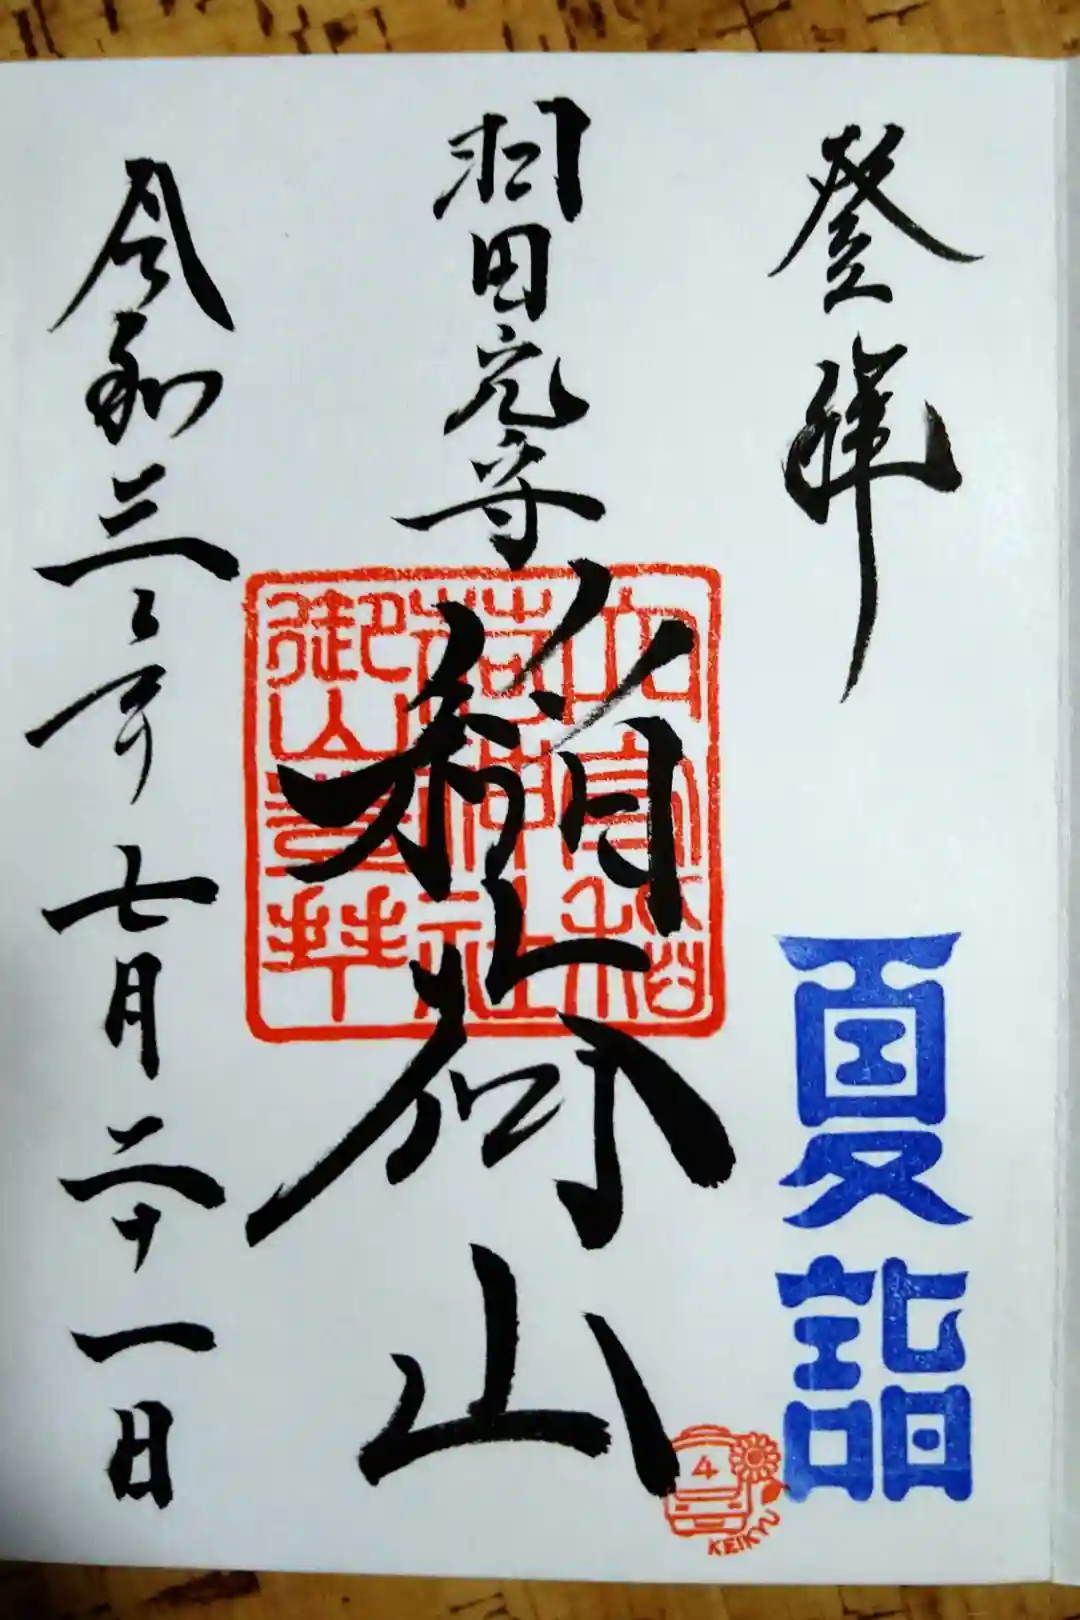 登拝
夏詣
羽田航守
稲荷山
穴守稲
荷神社
御山登拝
令和三年七月二十一日
4
KEIKYU